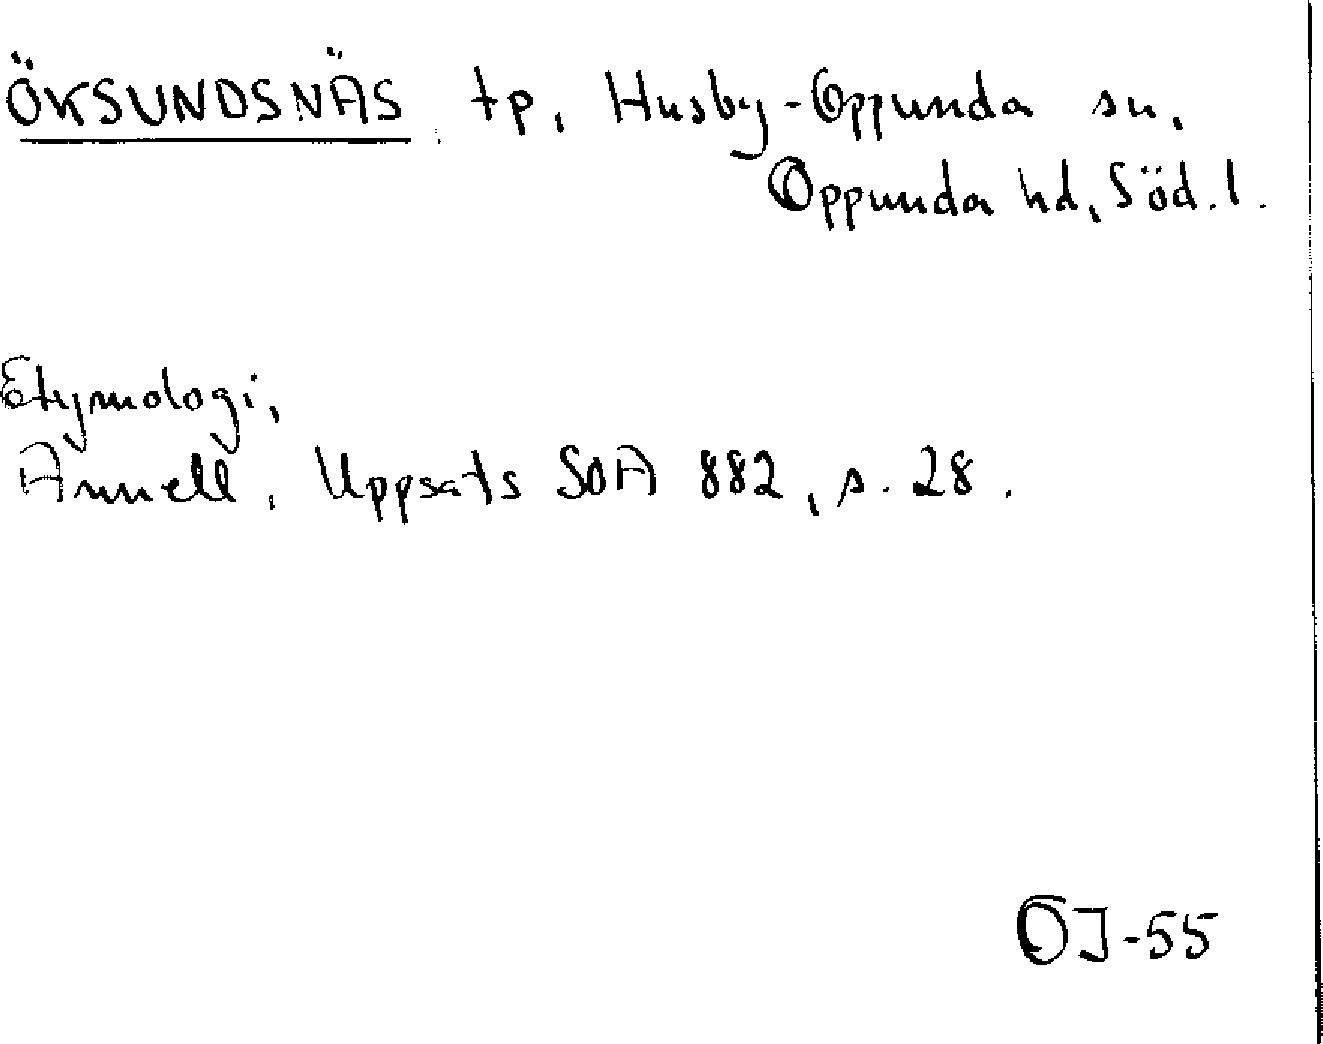 ÖKSUNDSNÄS, tp, Husby-Oppunda sn,
Oppunda hd, Söd.l.
Etymologi,
Annell, Uppsats SOA 882, s. 28.
OJ-55